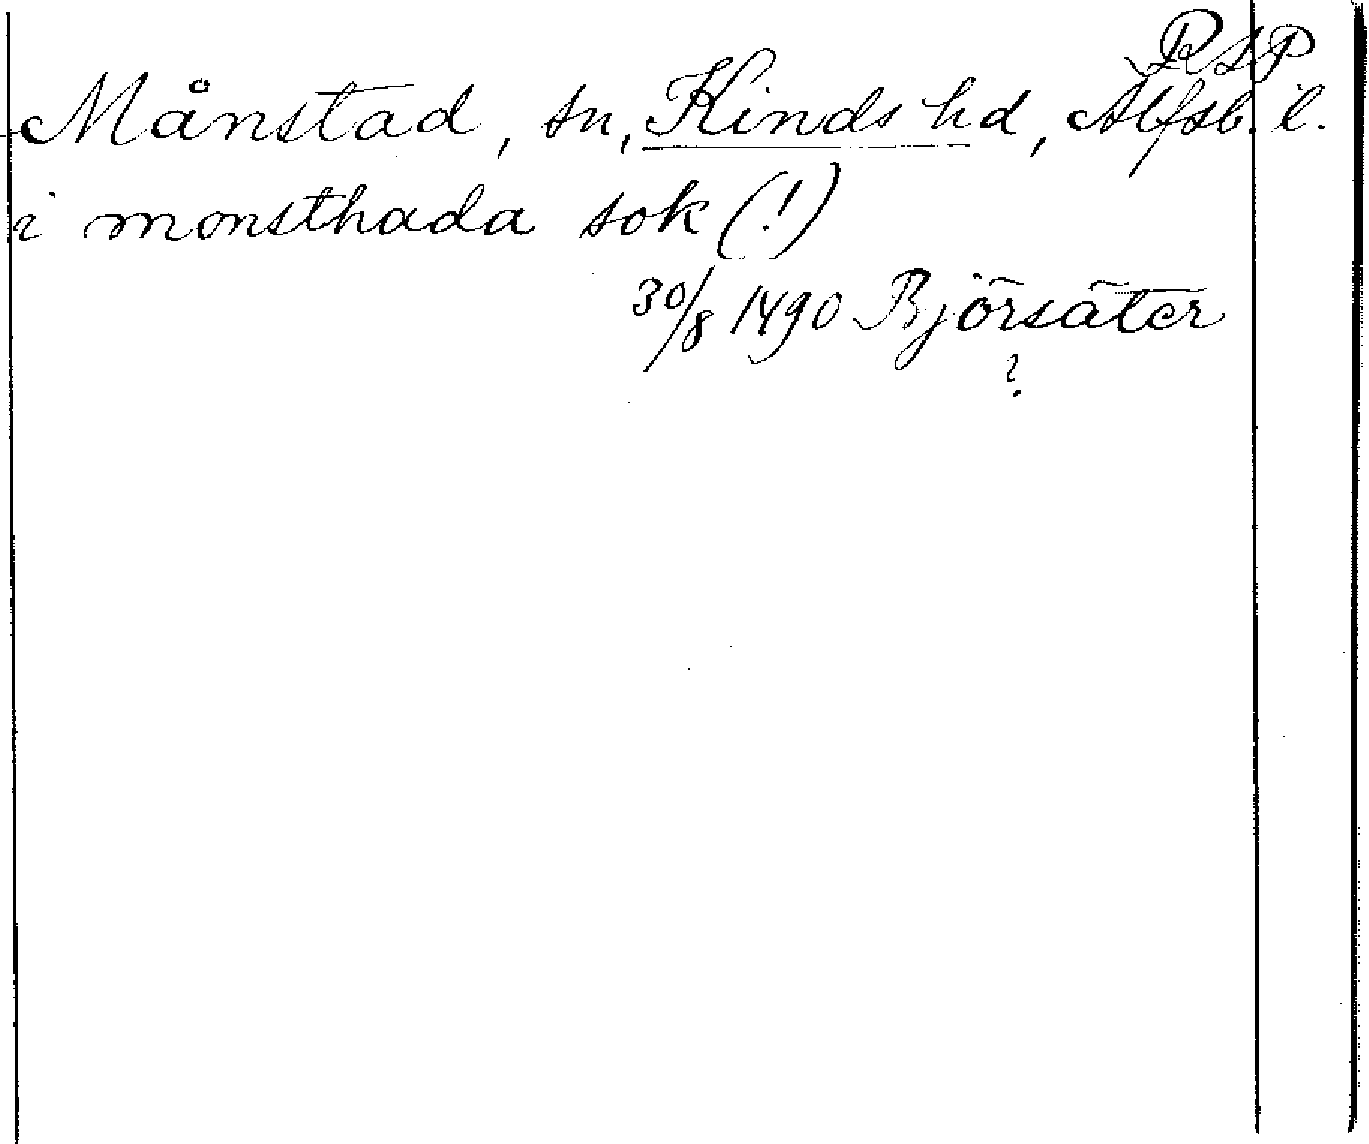 RAP
Månstad, sn, Kinds hd, Älfsb. l.
i monsthada sok (!)
30/8 1490 Björsäter
?